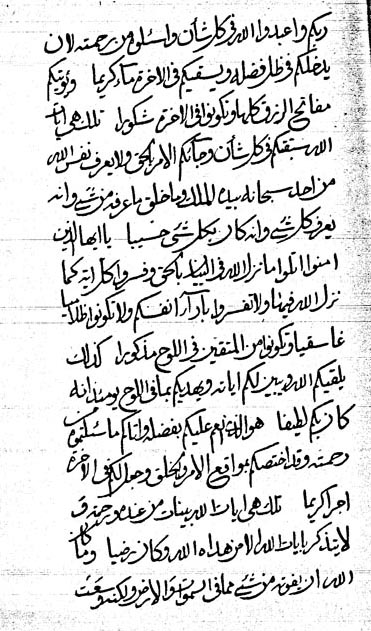 ربكم واعبدوا الله في كل شأن واسئلوا من رحمته لان
يدخلكم في ظل فضله ويسقيكم في الاخرة ماء كريما ويؤتيكم
مفاتح الرزق كلها وتكونوا في الاخرة شكورا تلك هي ايات
الله سبقتكم في كل شأن وجآئكم الامر بالحق ولا يعرف نفس الله
من احد سبحانه بيده الملك وما خلق ما عرفه من شئ وانه
يعرف كل شئ وانه كان بكل شئ حسيبا يا ايها الذين
امنوا اتلوا ما نزل الله في البيان بالحق وفسروا كل اية كما
نزل الله فيها ولا تفسروا بآرآء انفسكم ولا تكونوا ظلاميا
غاسقيا وتكونوا من المتقين في اللوح مذكورا كذلك
يلقيكم الله ويبين لكم اياته ويهديكم بما في اللوح يومئذ انه
كان بكم لطيفا هو الذي انعم عليكم بفضله واتاكم ما سئلتموه من
رحمته وقد اختصكم بمواقع الامر والخلق وجعل لكم في الاخرة
اجرا كريما تلك هي ايات الله بينات من عنده
لا يتذكر بايات الله الا من هداه الله وكان رضيا وما كان
الله ان يفوته من شئ عما في السموات والارض ولكنه